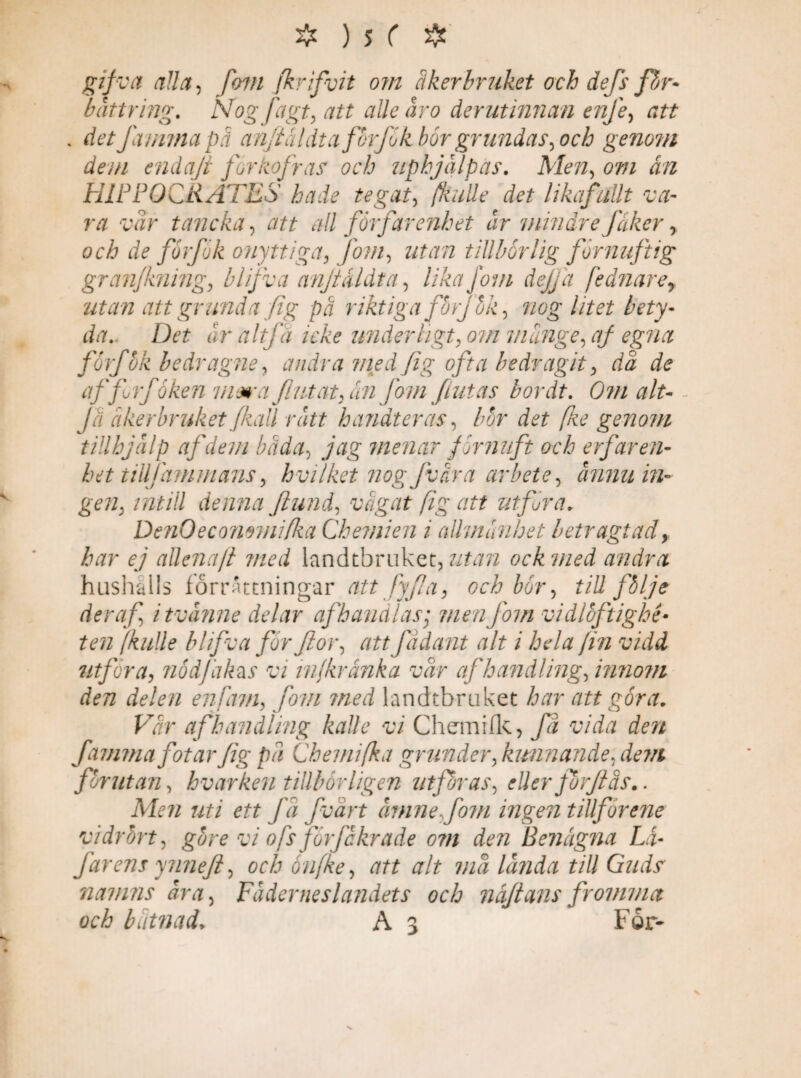 ☆ ) 5 ( ☆
gifva alla, ſom ſkrifvit om åkerbruket och deſs för-
båttring. Nog ſagt, att alle åro derutinnan enſe, att
det ſamma på anſtåldta förſök bör grundas, och genom
dem endaſt förkofras och uphjålpas. Men, om ån
HIPPOCRATES hade tegat, ſkulle det likafullt va-
ra vår tancka, att all förfarenhet år mindre ſåker,
och de förſök onyttiga, ſom, utan tillbörlig förnuftig
granſkning, blifva anſtåldta, lika ſom deſſa ſednare,
utan att grunda ſig på riktiga förſök, nog litet bety-
da. Det år altſå icke underligt, om månge, af egna
förſök bedragne, andra med ſig ofta bedragit, då de
af förſöken mera ſlutat, ån ſom ſlutas bordt. Om alt-
ſå åkerbruket ſkall rått handteras, bör det ſke genom
tillhjålp af dem båda, jag menar förnuft och erfaren-
het tillſammans, hvilket nog ſvåra arbete, ånnu in-
gen, intill denna ſtund, vågat ſig att utföra.
Den Oeconomiſka Chemien i allmånhet betragtad,
har ej allenaſt med landtbruket, utan ock med andra
hushålls förråttningar att ſyſla, och bör, till följe
deraf, i tvånne delar afhandlas; men ſom vidlöftighé-
ten ſkulle blifva för ſtor, att ſådant alt i hela ſin vidd
utföra, nödſakas vi inſkrånka vår afhandling, innom
den delen enſam, ſom med landtbruket har att göra.
Vår afhandling kalle vi Chemiſk, ſå vida den
ſamma fotar ſig på Chemiſka grunder, kunnande, dem
förutan, hvarken tillbörligen utföras, eller förſtås..
Men uti ett ſå ſvårt åmne, ſom ingen tillförene
vidrört, göre vi oſs förſåkrade om den Benågna Lå-
ſarens ynneſt, och önſke, att alt må lånda till Guds
namns åra, Fåderneslandets och nåſtans fromma
och båtnad. A 3 För-